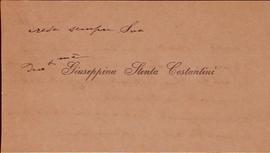 creda sempre Sua
Dev.ma
Giuseppina Stenta Costantini